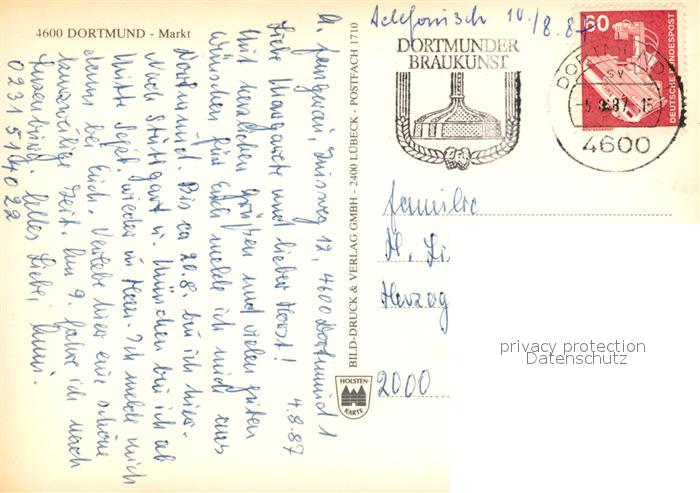 4600 DORTMUND - Markt
A. Jungmari, 12, 4600 Dortmund 1
4.8.87
Liebe Margarete und lieber Horst!
Mit herzlichen Grüßen und vielen guten
Wünschen für Euch melde ich mich aus
Dortmund. Bis ca 20.8. bin ich hier.
Nach Stuttgart u. München bin ich ab
Mitte Sept. wieder im Haus. Ich melde mich
dann bei Euch. Verlebe hier eine schöne
kurzweilige Zeit. Am 9. fahre ich nach
Alles Liebe,
0231 514022
BILD-DRUCK & VERLAG GMBH - 2400 LÜBECK - POSTFACH 1710
HOLSTEN-
KARTE
Telefonisch 10./8.87
DORTMUNDER
BRAUKUNST
DORTMUND
sv
-5.8.87.15
4600
60
DEUTSCHE BUNDESPOST
Familie
H. Li
Herzog
2000
privacy protection
Datenschutz